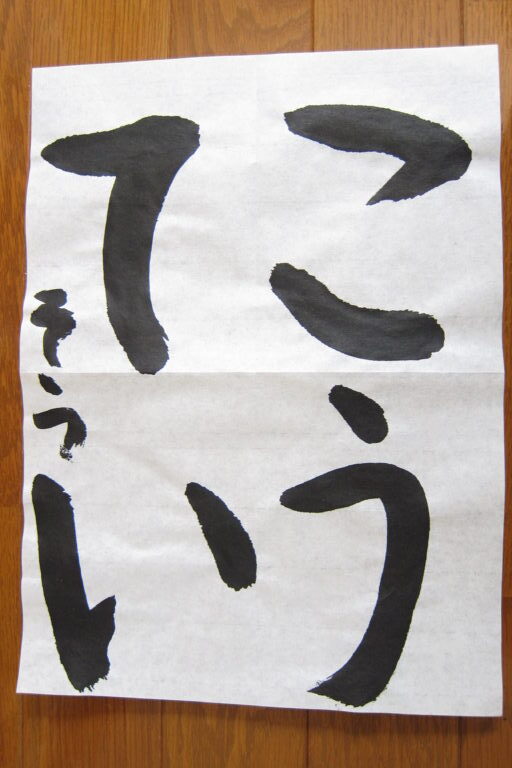 こう
てい
そう